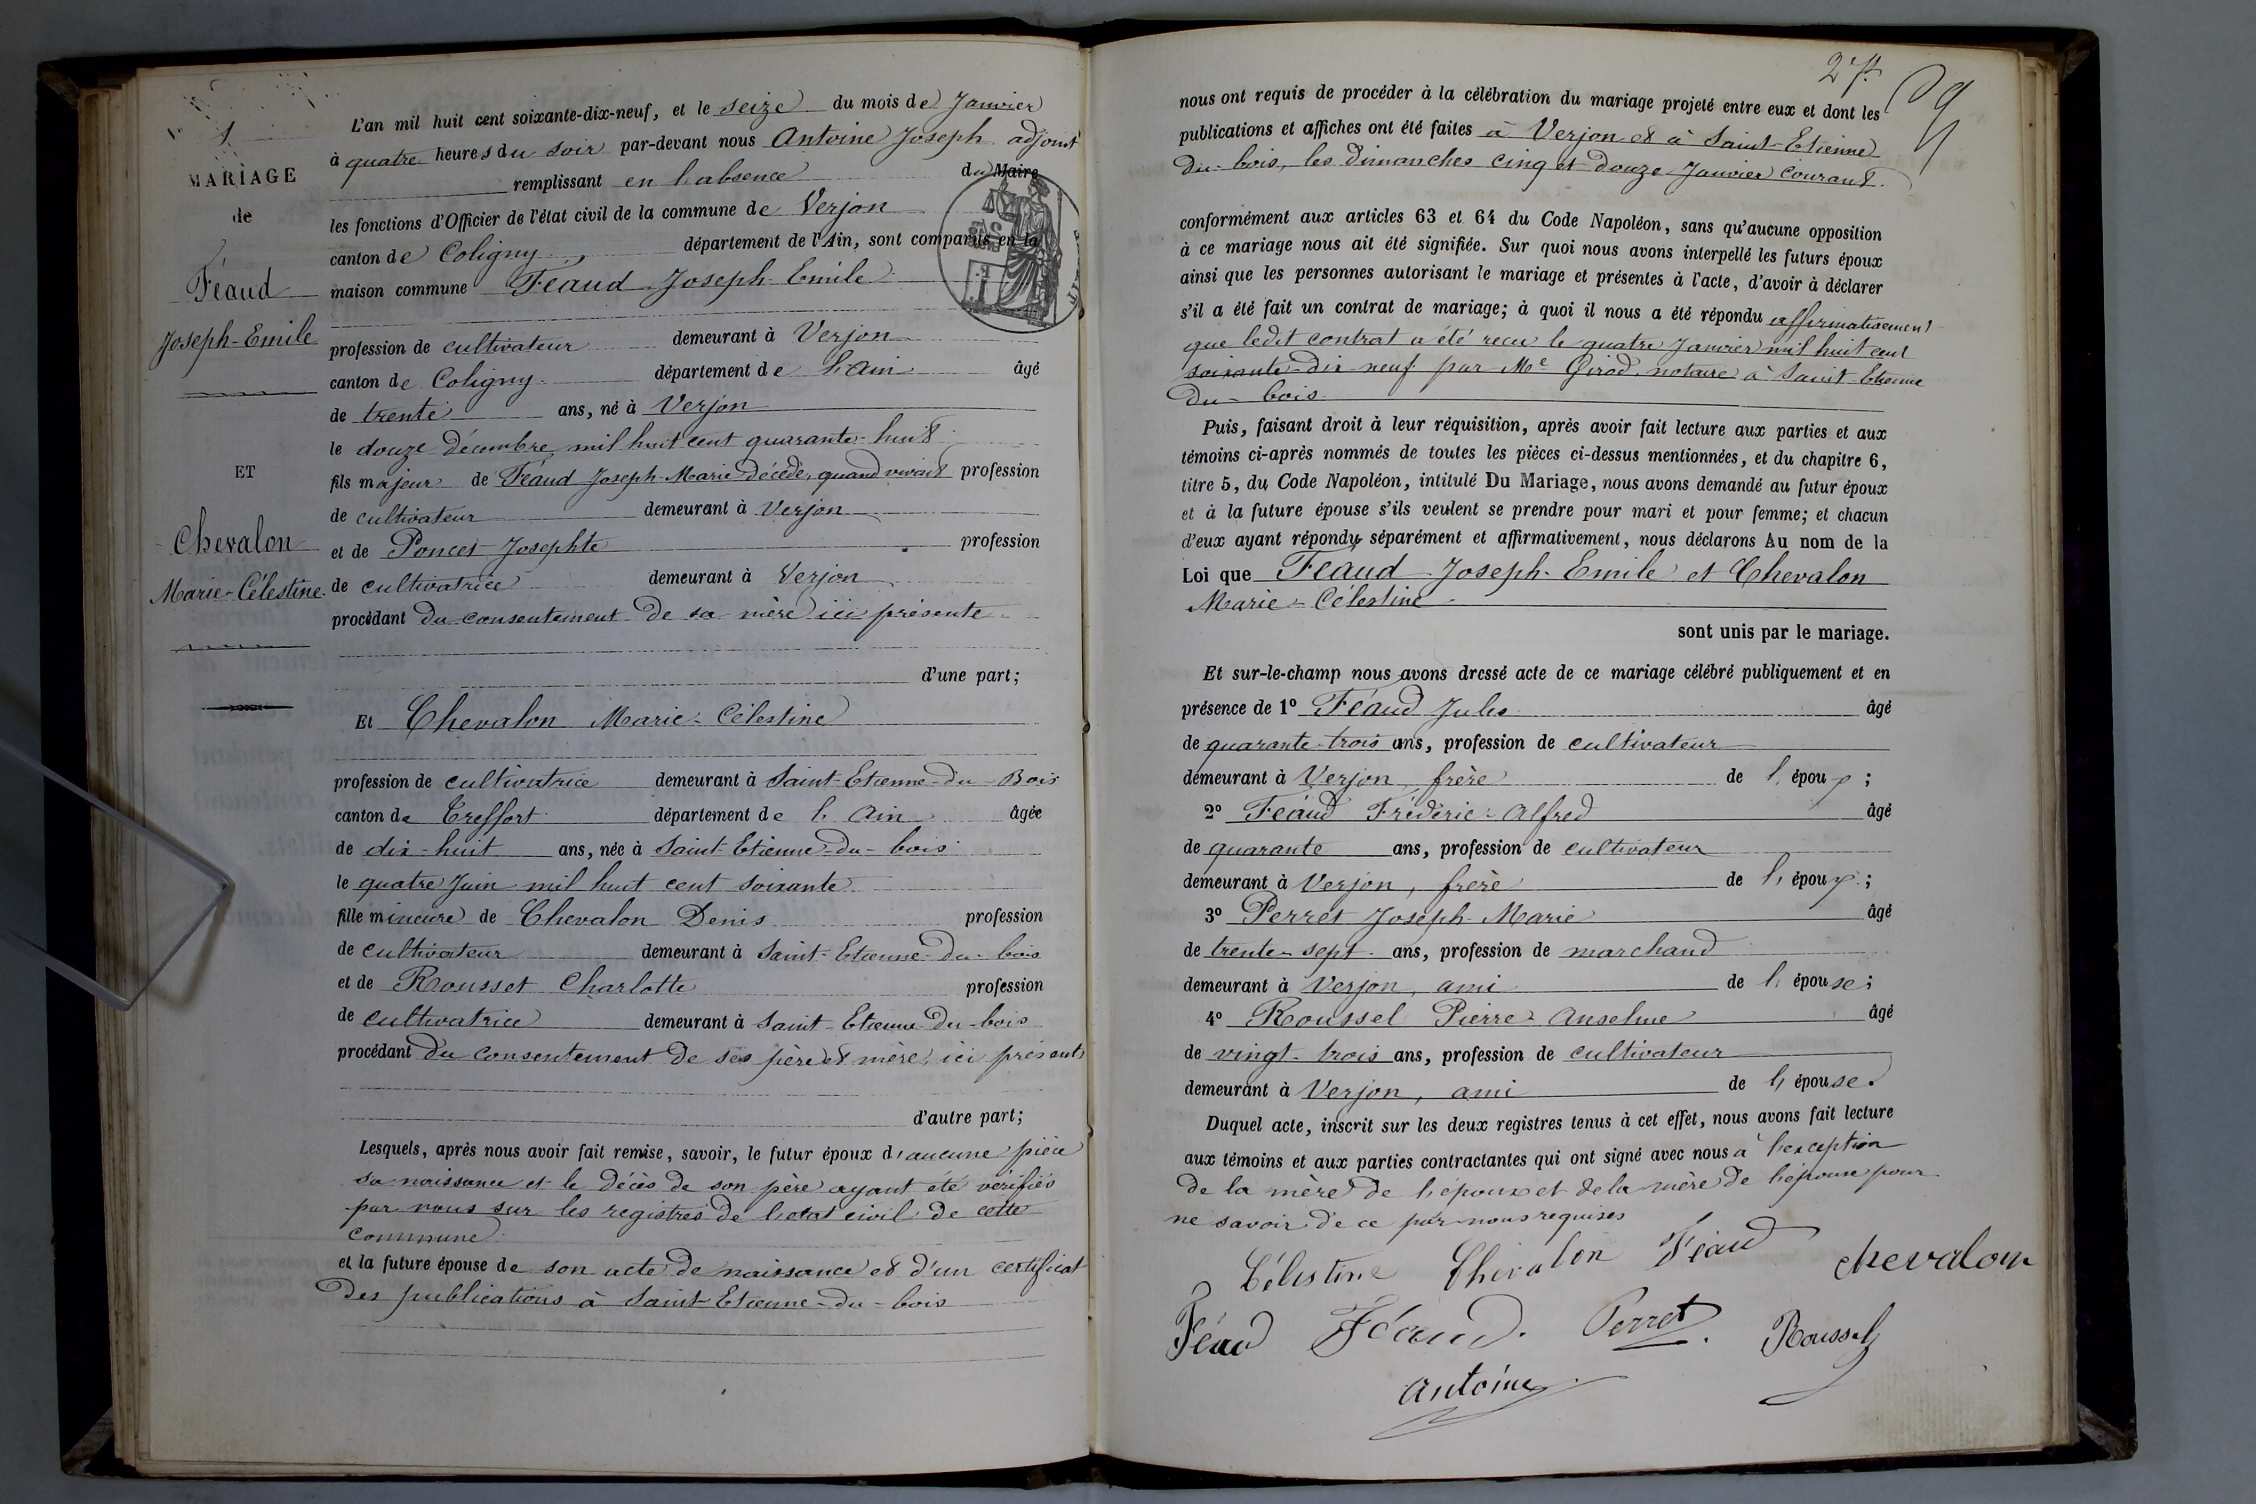 1
MARIAGE
de
Féaud
Joseph-Emile
ET
Chevalon
Marie-Célestine.
L'an mil huit cent soixante-dix-neuf, et le seize du mois de Janvier
à quatre heures du soir par-devant nous Antoine Joseph adjoint
remplissant en l'absence du Maire
les fonctions d'Officier de l'état civil de la commune de Verjon
canton de Coligny département de l'Ain, sont comparus en la
maison commune Féaud Joseph-Emile
profession de cultivateur demeurant à Verjon
canton de Coligny département de l'Ain âgé
de trente ans, né à Verjon
le douze décembre mil huit cent quarante-huit
fils majeur de Féaud Joseph-Marie décédé, quand vivait profession
de cultivateur demeurant à Verjon
et de Poncet Josephte profession
de cultivatrice demeurant à Verjon
procédant du consentement de sa mère ici présente
d'une part;
Et Chevalon Marie-Célestine
profession de cultivatrice demeurant à Saint-Etienne-du-Bois
canton de Treffort département de l'Ain âgée
de dix-huit ans, née à Saint-Etienne-du-bois
le quatre Juin mil huit cent soixante
fille mineure de Chevalon Denis profession
de cultivateur demeurant à Saint-Etienne-du-bois
et de Rousset Charlotte profession
de cultivatrice demeurant à Saint-Etienne-du-bois
procédant du consentement de ses père et mère, ici présents
d'autre part;
Lesquels, après nous avoir fait remise, savoir, le futur époux d'aucune pièce
sa naissance et le décès de son père ayant été vérifiés
par nous sur les registres de l'état civil de cette
commune
et la future épouse de son acte de naissance et d'un certificat
des publications à Saint-Etienne-du-bois
nous ont requis de procéder à la célébration du mariage projeté entre eux et dont les
publications et affiches ont été faites à Verjon et à Saint-Etienne
du-bois, les dimanches cinq et douze Janvier courant.
conformément aux articles 63 et 64 du Code Napoléon, sans qu'aucune opposition
à ce mariage nous ait été signifiée. Sur quoi nous avons interpellé les futurs époux
ainsi que les personnes autorisant le mariage et présentes à l'acte, d'avoir à déclarer
s'il a été fait un contrat de mariage; à quoi il nous a été répondu affirmativement
que ledit contrat a été reçu le quatre Janvier mil huit cent
soixante-dix-neuf par Me Girod, notaire à Saint-Etienne
du-bois.
Puis, faisant droit à leur réquisition, après avoir fait lecture aux parties et aux
témoins ci-après nommés de toutes les pièces ci-dessus mentionnées, et du chapitre 6,
titre 5, du Code Napoléon, intitulé Du Mariage, nous avons demandé au futur époux
et à la future épouse s'ils veulent se prendre pour mari et pour femme; et chacun
d'eux ayant répondu séparément et affirmativement, nous déclarons Au nom de la
Loi que Féaud Joseph-Emile et Chevalon
Marie-Célestine
sont unis par le mariage.
Et sur-le-champ nous avons dressé acte de ce mariage célébré publiquement et en
présence de 1º Féaud Jules âgé
de quarante-trois ans, profession de cultivateur
demeurant à Verjon, frère de l'époux;
2º Féaud Frédéric-Alfred âgé
de quarante ans, profession de cultivateur
demeurant à Verjon, frère de l'époux;
3º Perret Joseph-Marie âgé
de trente-sept ans, profession de marchand
demeurant à Verjon, ami de l'épouse;
4º Roussel Pierre-Anselme âgé
de vingt-trois ans, profession de cultivateur
demeurant à Verjon, ami de l'épouse.
Duquel acte, inscrit sur les deux registres tenus à cet effet, nous avons fait lecture
aux témoins et aux parties contractantes qui ont signé avec nous à l'exception
de la mère de l'époux et de la mère de l'épouse pour
ne savoir de ce par nous requises
Célestine Chevalon Féaud chevalon
Féaud Féaud. Perret. Roussel
Antoine